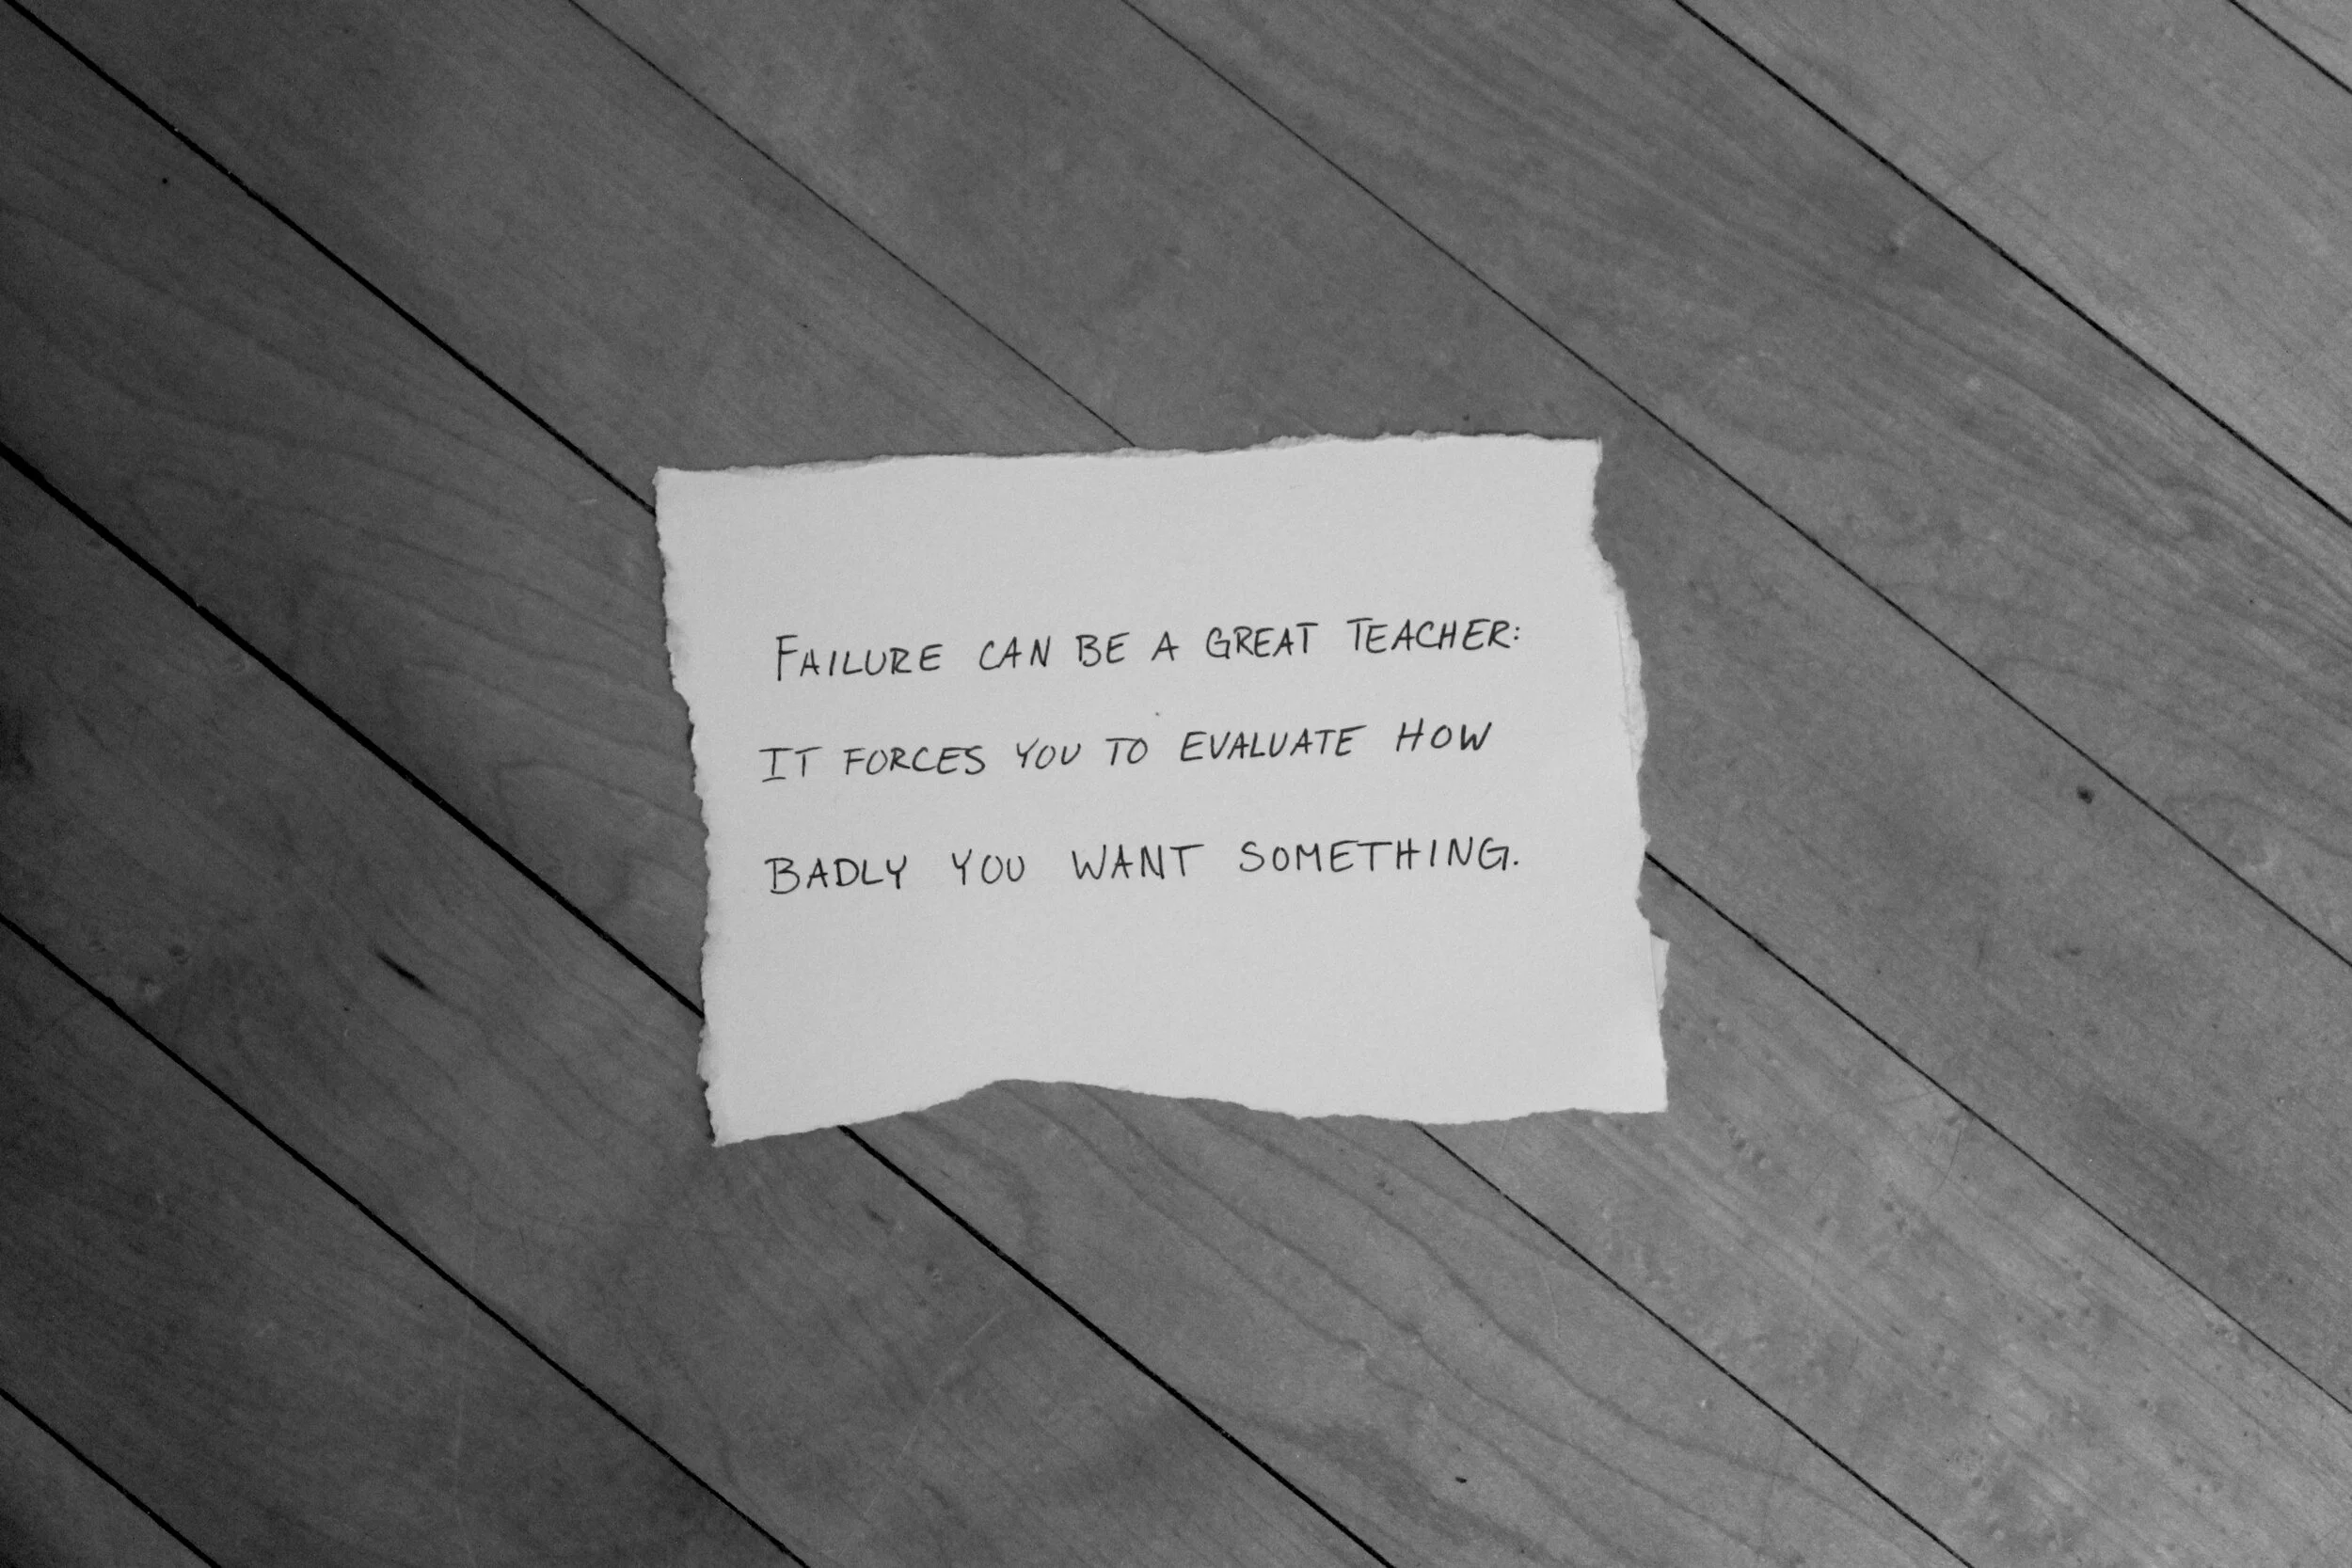 FAILURE CAN BE A GREAT TEACHER:
IT FORCES YOU TO EVALUATE HOW
BADLY YOU WANT SOMETHING.